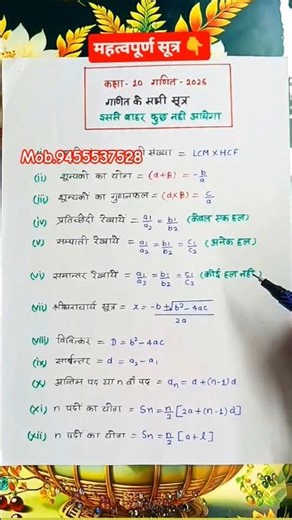 महत्वपूर्ण सूत्र 👇
कक्षा - 10 गणित - 2026
गणित के सभी सूत्र
इससे बाहर कुछ नहीं आयेगा
Mob.9455537528
संख्या = LCM × HCF
(ii) शून्यकों का योग = (α + β) = -b/a
(iii) शून्यकों का गुणनफल = (α×β) = c/a
(iv) प्रतिच्छेदी रेखायें = a₁/a₂ = b₁/b₂ (केवल एक हल)
(v) सम्पाती रेखायें = a₁/a₂ = b₁/b₂ = c₁/c₂ (अनेक हल)
(vi) समान्तर रेखायें = a₁/a₂ = b₁/b₂ = c₁/c₂ (कोई हल नहीं
(vii) श्रीधराचार्य सूत्र = x = -b ± √b² - 4ac / 2a
(viii) विविक्तकर = D = b² - 4ac
(ix) सार्वन्तर = d = a₂ - a₁
(x) अन्तिम पद या n वाँ पद = aₙ = a + (n-1)d
(xi) n पदों का योग = Sn = n/2 [2a + (n-1)d]
(xii) n पदों का योग = Sn = n/2 [a + l]